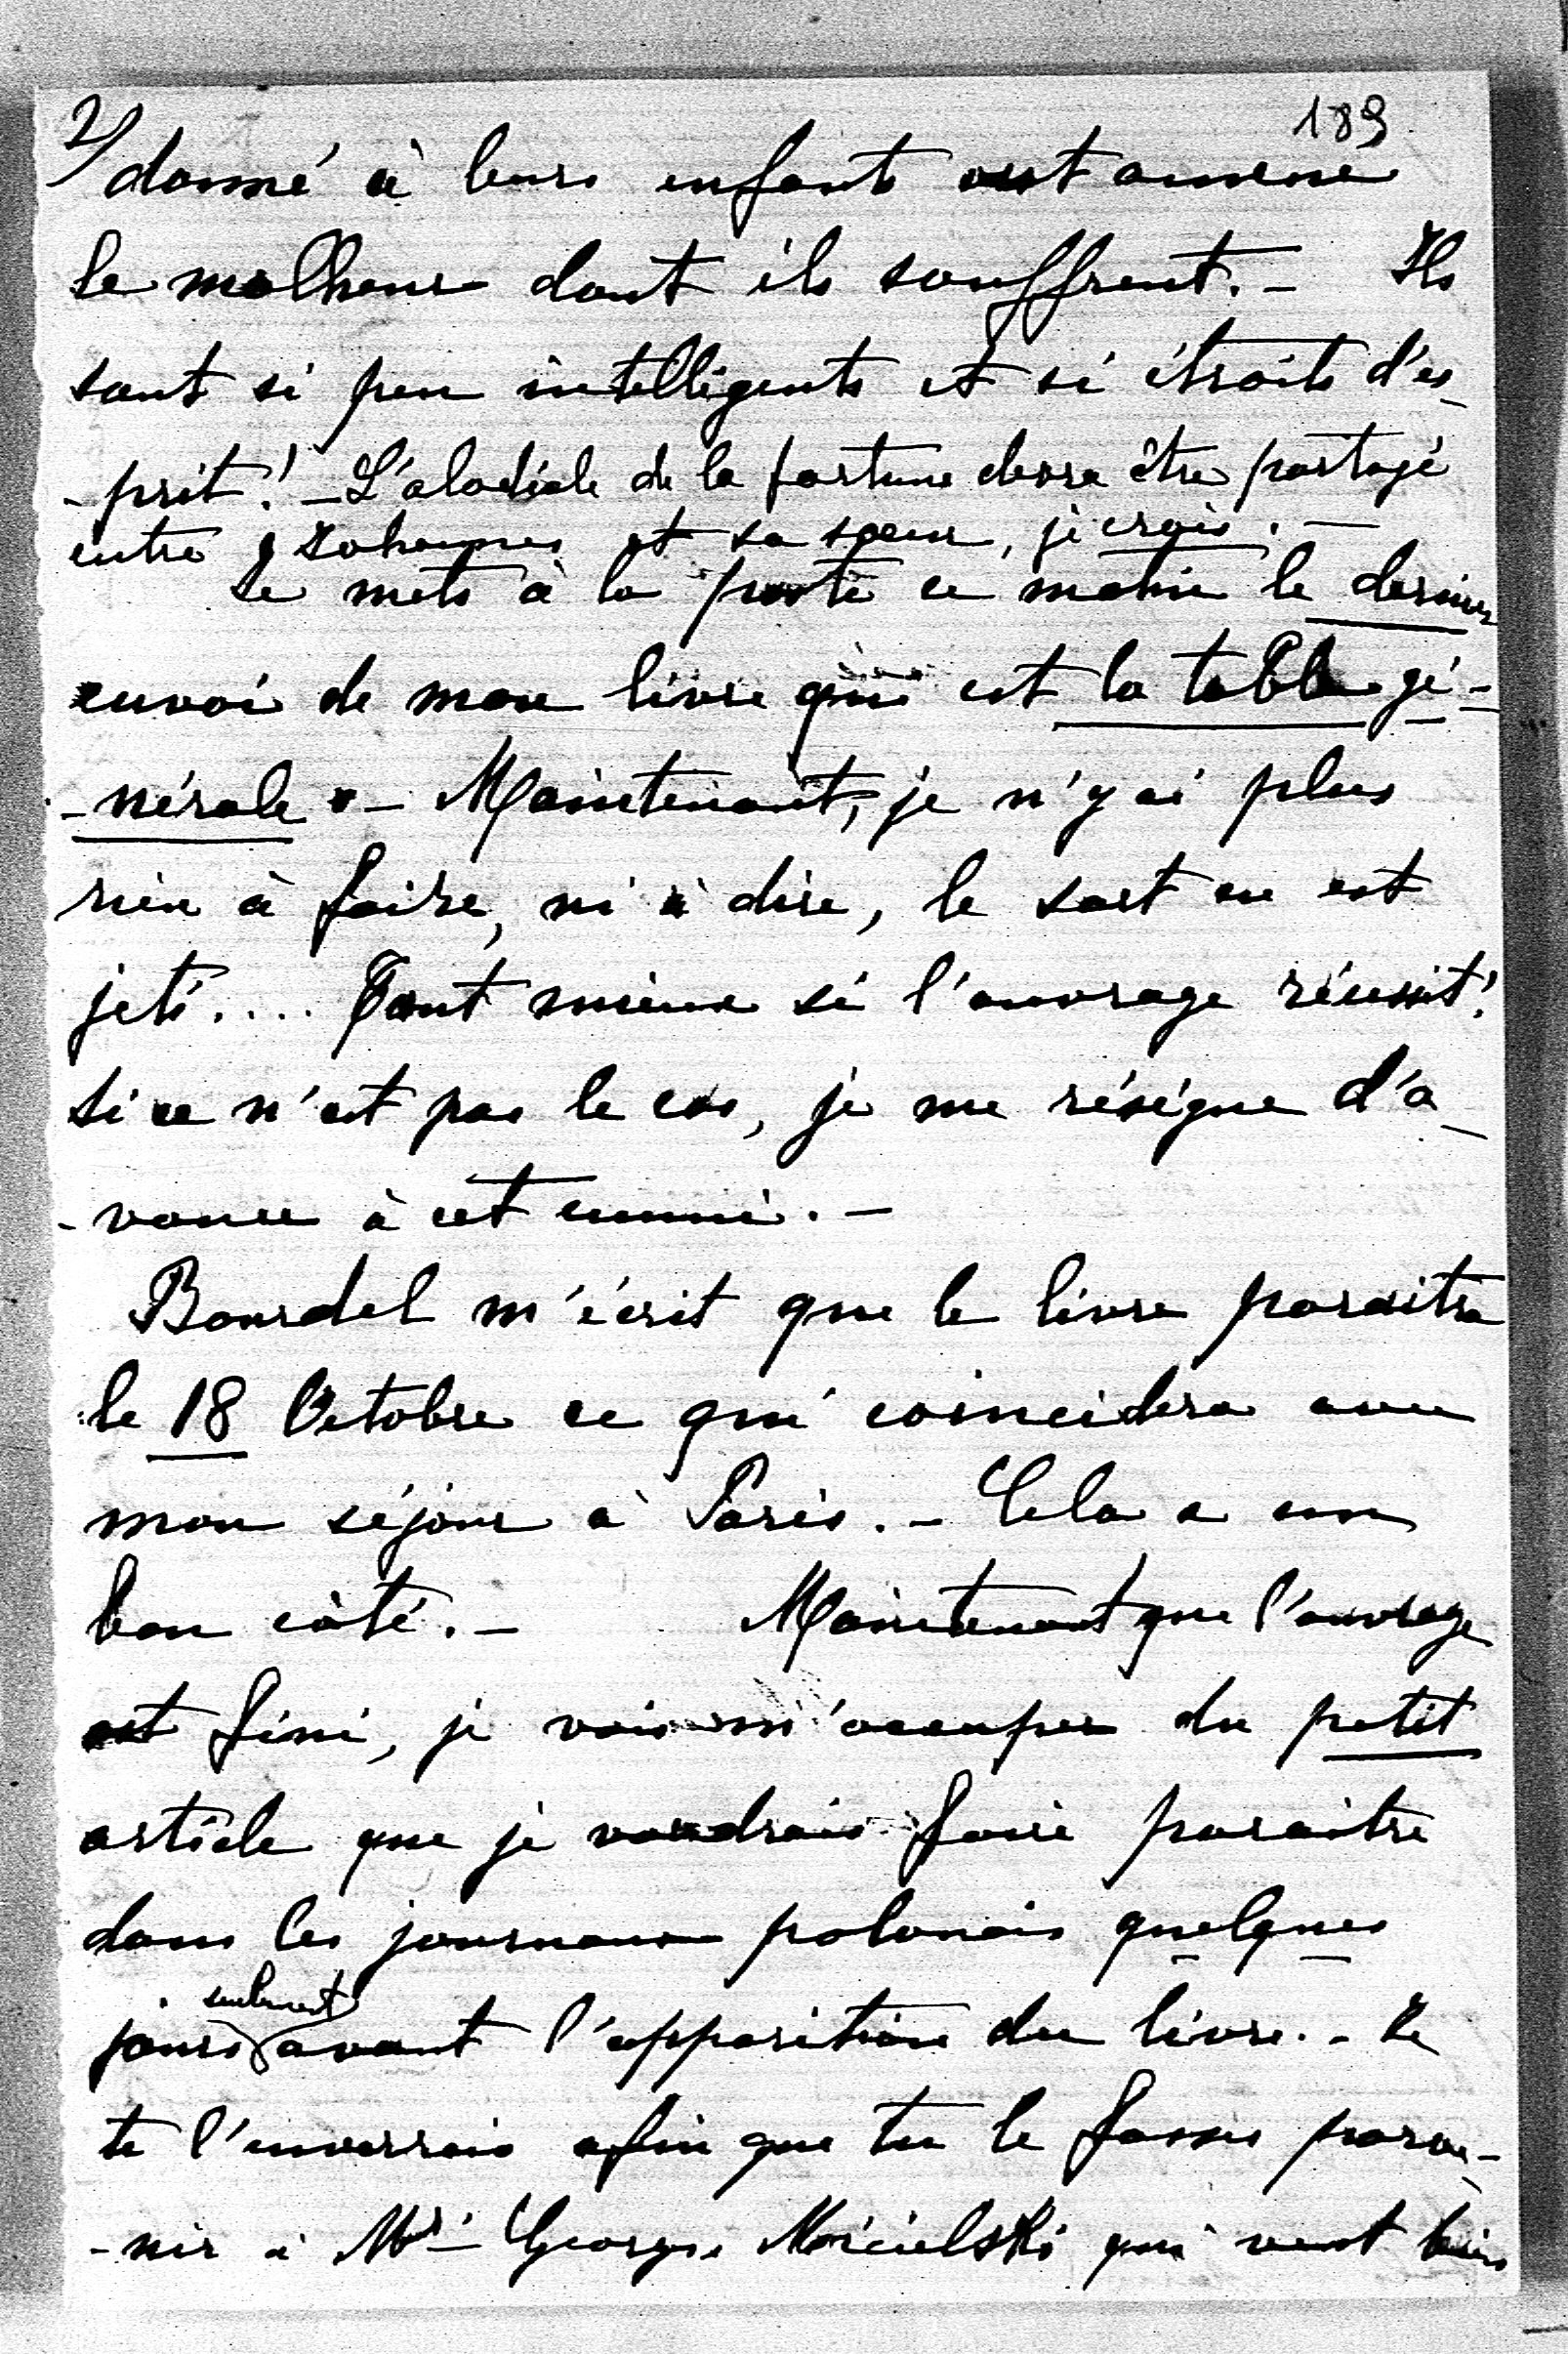 2/ 189
donné à leurs enfants ont amené
le malheur dont ils souffrent. - Ils
sont si peu intelligents et si étroits d'es-
-prit! - L'alodiale de la fortune devra être partagé
entre Johannes et sa soeur, je crois. -
Je mets à la poste ce matin le dernier
envoi de mon livre qui est la table gé-
-nérale. - Maintenant, je n'y ai plus
rien à faire, ni à dire, le sort en est
jeté.... Tant mieux si l'ouvrage réussit!
Si ce n'est pas le cas, je me résigne d'a-
-vance à cet ennui. -
Bourdel m'écrit que le livre paraitra
le 18 Octobre ce qui coincidera avec
mon séjour à Paris. - Cela a un
bon côté. - Maintenant que l'ouvrage
est fini, je vais m'occuper du petit
article que je voudrais faire paraitre
dans les journaux polonais quelques
seulement
jours avant l'apparition du livre. - Je
te l'enverrais afin que tu le fasses parve-
-nir à Mr Georges qui veut bien